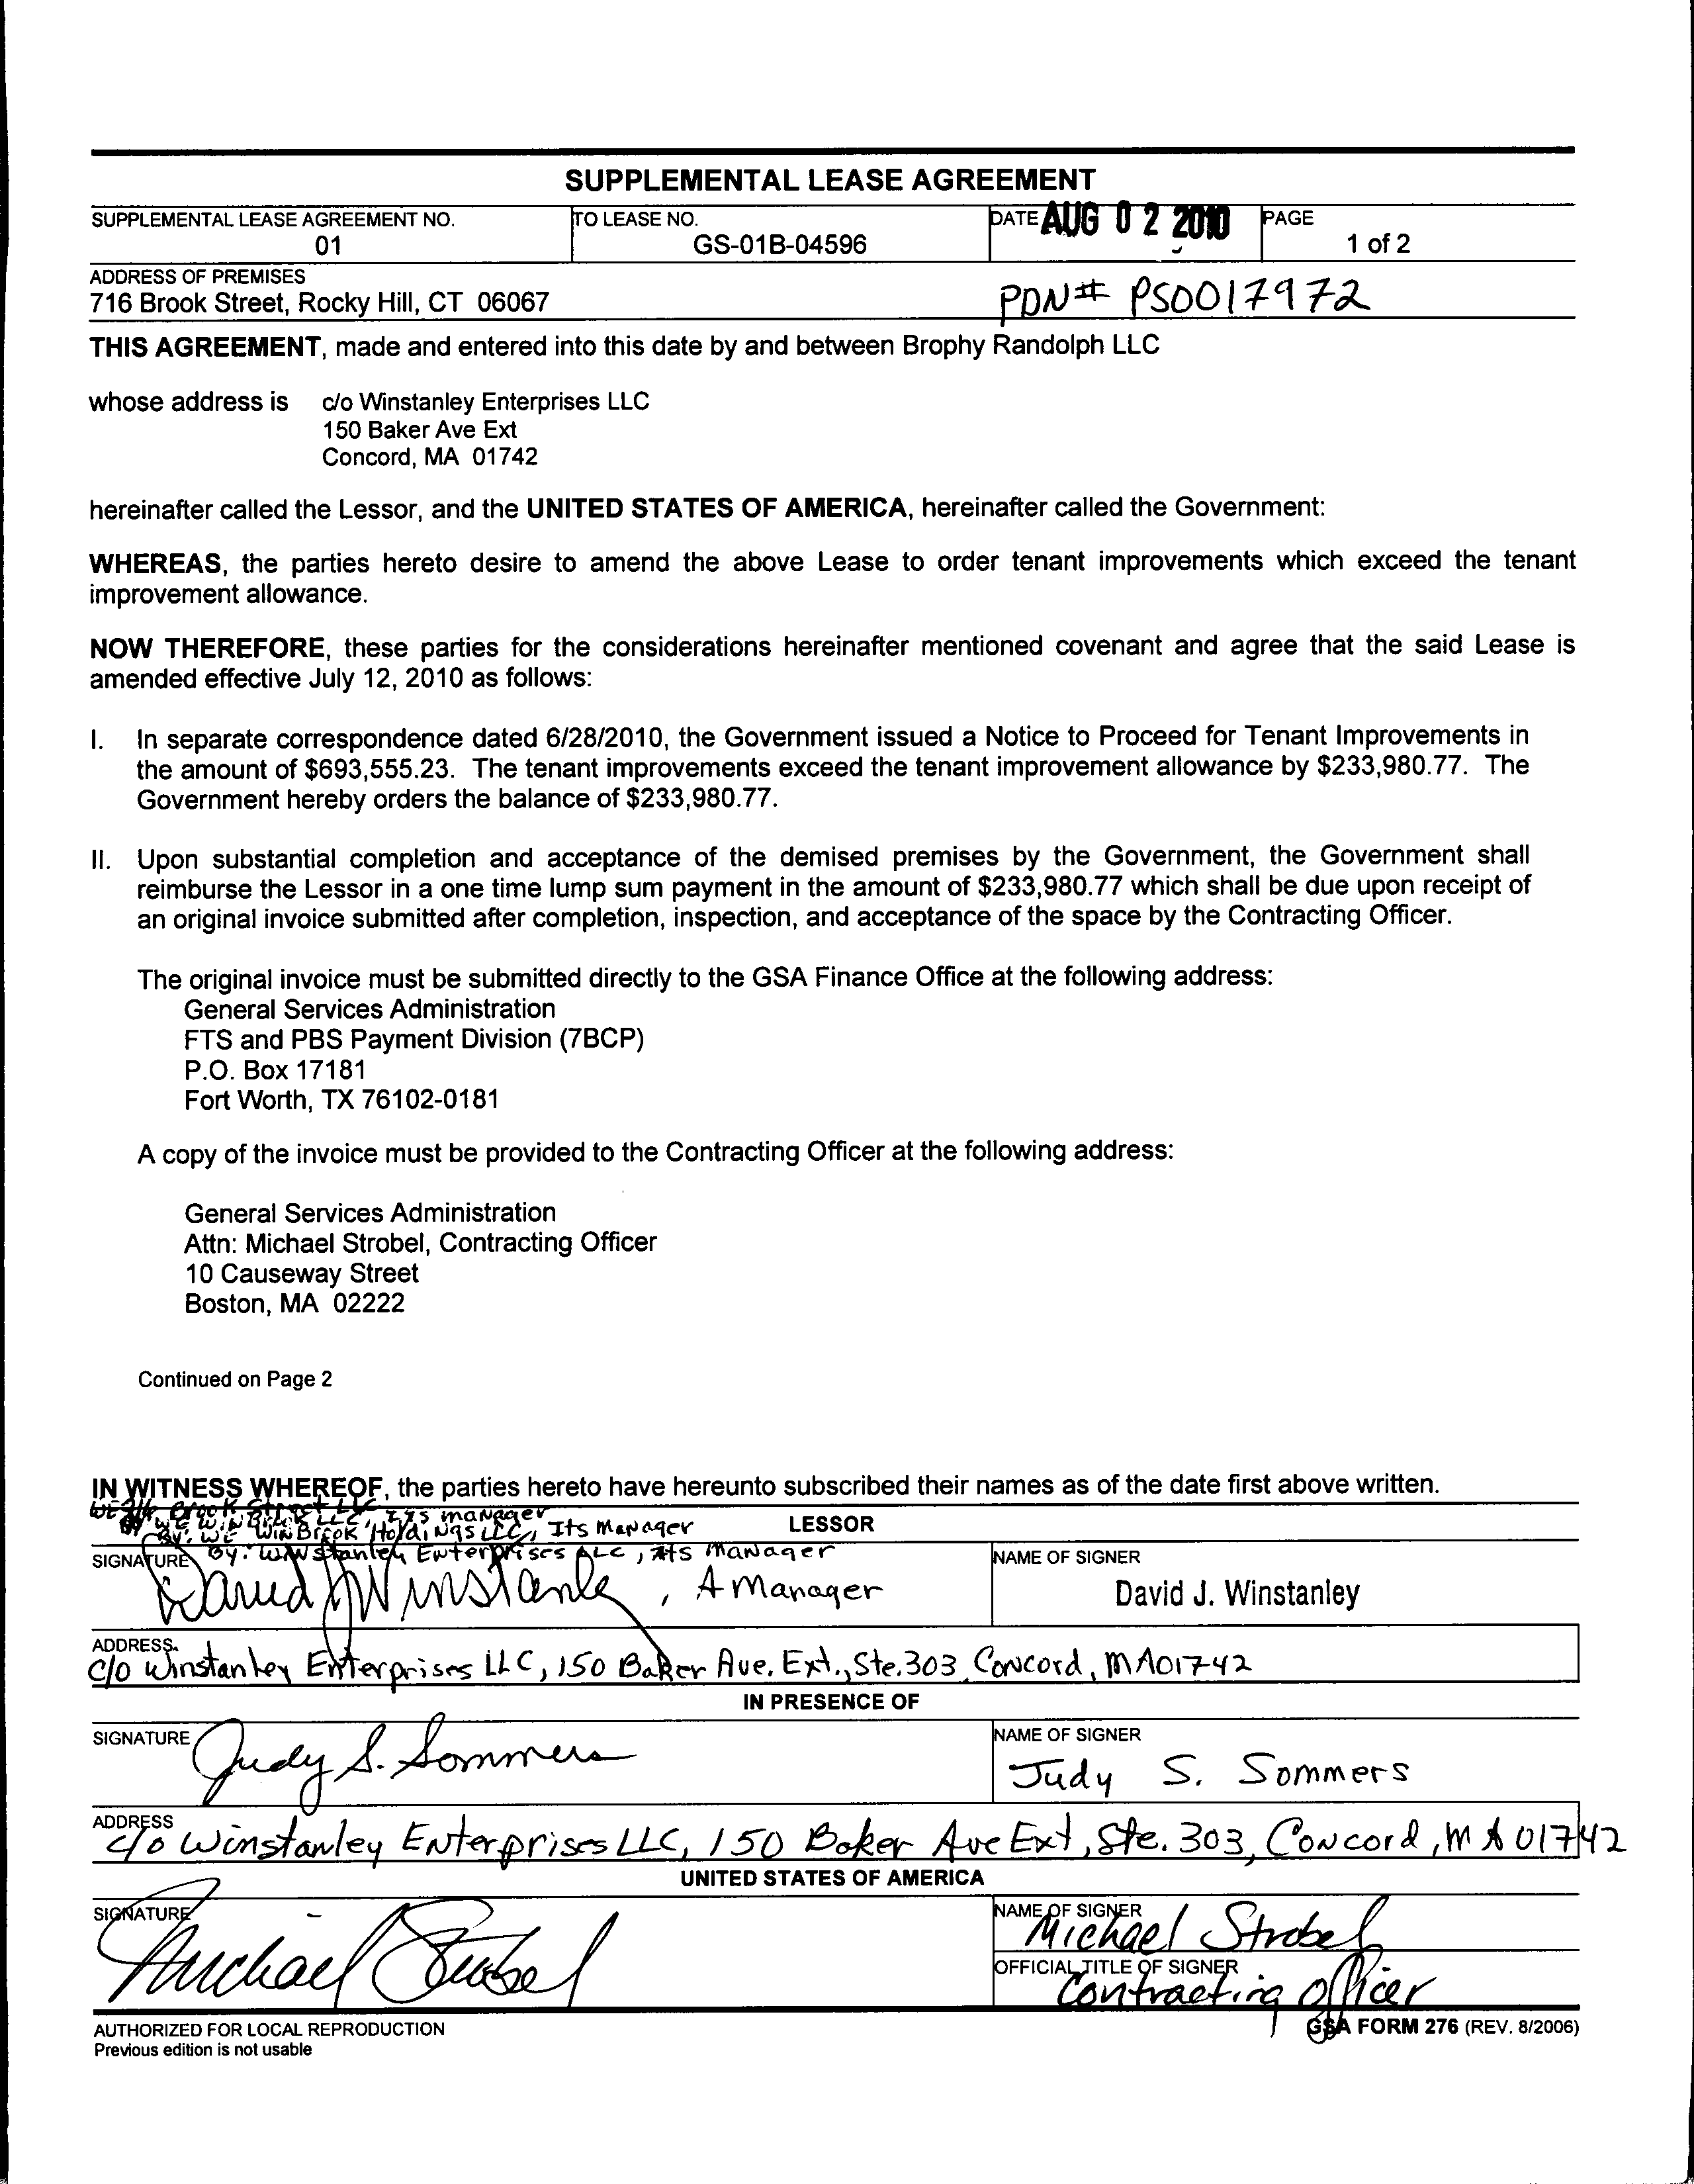 SUPPLEMENTAL LEASE AGREEMENT
SUPPLEMENTAL LEASE AGREEMENT NO.
01
TO LEASE NO.
GS-01B-04596
DATE AUG 02 2010
PAGE
1 of 2
ADDRESS OF PREMISES
716 Brook Street, Rocky Hill, CT 06067
PDN# PS0017972
THIS AGREEMENT, made and entered into this date by and between Brophy Randolph LLC
whose address is c/o Winstanley Enterprises LLC
150 Baker Ave Ext
Concord, MA 01742
hereinafter called the Lessor, and the UNITED STATES OF AMERICA, hereinafter called the Government:
WHEREAS, the parties hereto desire to amend the above Lease to order tenant improvements which exceed the tenant
improvement allowance.
NOW THEREFORE, these parties for the considerations hereinafter mentioned covenant and agree that the said Lease is
amended effective July 12, 2010 as follows:
I. In separate correspondence dated 6/28/2010, the Government issued a Notice to Proceed for Tenant Improvements in
the amount of $693,555.23. The tenant improvements exceed the tenant improvement allowance by $233,980.77. The
Government hereby orders the balance of $233,980.77.
II. Upon substantial completion and acceptance of the demised premises by the Government, the Government shall
reimburse the Lessor in a one time lump sum payment in the amount of $233,980.77 which shall be due upon receipt of
an original invoice submitted after completion, inspection, and acceptance of the space by the Contracting Officer.
The original invoice must be submitted directly to the GSA Finance Office at the following address:
General Services Administration
FTS and PBS Payment Division (7BCP)
P.O. Box 17181
Fort Worth, TX 76102-0181
A copy of the invoice must be provided to the Contracting Officer at the following address:
General Services Administration
Attn: Michael Strobel, Contracting Officer
10 Causeway Street
Boston, MA 02222
Continued on Page 2
IN WITNESS WHEREOF, the parties hereto have hereunto subscribed their names as of the date first above written.
Brook Street LLC
LLC, Its manager
By: WE WinBrook Holdings LLC, Its Manager
LESSOR
By: Winstanley Enterprises LLC, Its Manager
SIGNATURE
David J Winstanley, A Manager
NAME OF SIGNER
David J. Winstanley
ADDRESS
c/o Winstanley Enterprises LLC, 150 Baker Ave. Ext., Ste. 303, Concord, MA 01742
IN PRESENCE OF
SIGNATURE
Judy S. Sommers
NAME OF SIGNER
Judy S. Sommers
ADDRESS
c/o Winstanley Enterprises LLC, 150 Baker Ave Ext, Ste. 303, Concord, MA 01742
UNITED STATES OF AMERICA
SIGNATURE
Michael Strobel
NAME OF SIGNER
Michael Strobel
OFFICIAL TITLE OF SIGNER
Contracting Officer
AUTHORIZED FOR LOCAL REPRODUCTION
Previous edition is not usable
GSA FORM 276 (REV. 8/2006)